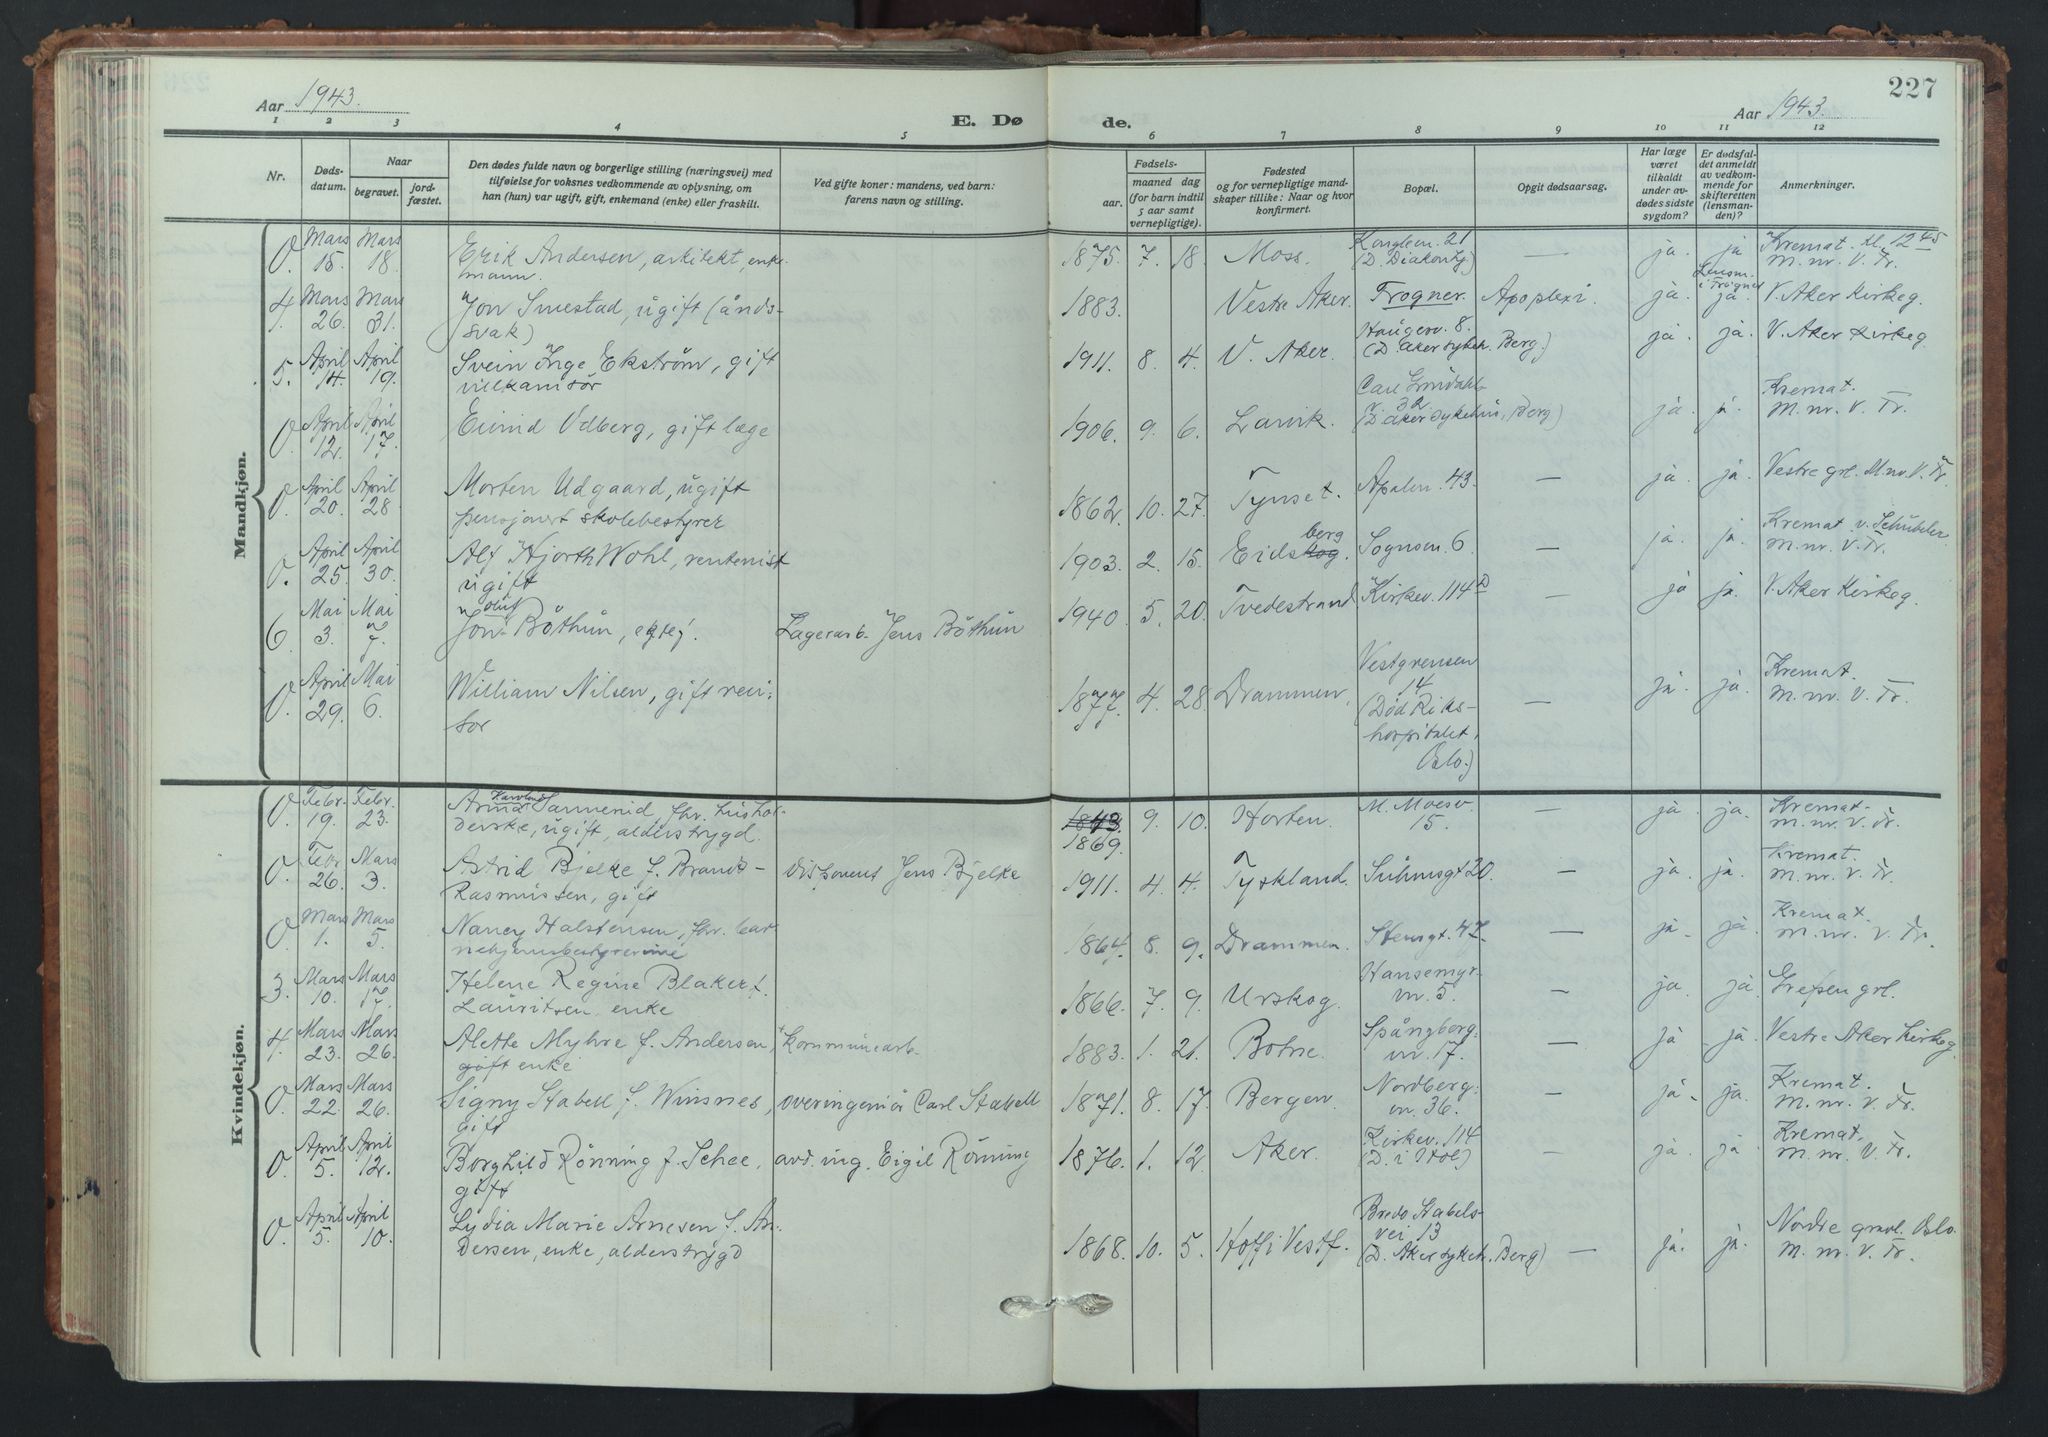 227
Aar 1943.
E. Døde.
Aar 1943.
1 2 3 4 5 6 7 8 9 10 11 12
Nr.
Døds-
datum.
Naar
begravet.
jord-
fæstet.
Den dødes fulde navn og borgerlige stilling (næringsvei) med
tilføielse for voksnes vedkommende av oplysning, om
han (hun) var ugift, gift, enkemand (enke) eller fraskilt.
Ved gifte koner: mandens, ved barn:
farens navn og stilling.
Fødsels-
aar.
maaned dag
(for barn indtil
5 aar samt
vernepligtige).
Fødested
og for vernepligtige mand-
skaper tillike: Naar og hvor
konfirmert.
Bopæl.
Opgit dødsaarsag.
Har læge
været
tilkaldt
under av-
dødes sidste
sygdom?
Er dødsfal-
det anmeldt
av vedkom-
mende for
skifteretten
(lensman-
den)?
Anmerkninger.
Mandkjøn.
0. Mars 15. Mars 18. Erik Andersen, arkitekt, enke-
mann. 1875. 7. 18. Moss. 21 (D. Diakonhj.) — ja. ja Kremat. kl. 12 45
M. nr. V. Fr.
4. Mars 26. Mars 31. Jon Smestad, ugift (ånds-
svak) 1883. Vestre Aker. Frogner. Apoplexi. ja. Lensm. i Frogner ja. V. Aker Kirkeg.
5. April 14. April 19. Svein Inge Ekström, gift
1911. 8. 4. V. Aker. Haugerv. 8. (D. Aker sykeh. Berg.) ja. ja. V. Aker Kirkeg.
0. April 12. April 17. Eivind Udberg, gift læge
1906. 9. 6. Larvik. Carl Grindahls v. 32 (D. Aker sykehus, Berg) ja. ja. Kremat.
M. nr. V. Fr.
0. April 20. April 28. Morten Udgaard, ugift
pensjonert skolebestyrer 1862. 10. 27. Tynset. Apalen. 43. — ja. ja. Vestre grl. M. nr. V. Fr.
0. April 25. April 30. Alf Hjorth Wohl, rentenist
ugift 1903. 2. 15. Eidsberg. Sognsen. 6. — ja. ja. Kremat. v. Schübeler
M. nr. V. Fr.
6. Mai 3. Mai 7. Jon Oluf Böthun, egtef. Lagerarb. Jens Böthun 1940. 5. 20. Tvedestrand Kirkev. 114 D — ja ja. V. Aker Kirkeg.
0. April 29. Mai 6. William Nilsen, gift revi-
sor 1877. 4. 28. Drammen. Vestgrensen
14
(Död Riks-
hospitalet,
Oslo.) — ja. ja. Kremat.
M. nr. V. Fr.
Kvindekjøn.
0. Febr. 19. Febr. 23. Anna Sannerud, fhv. hushol-
derske, ugift, alderstrygd. 1869. 9. 10. Horten. M. Moesv.
15. — ja. ja. Kremat.
M. nr. V. Fr.
0. Febr 26. Mars 3. Astrid Bjelke f. Brandt-
Rasmussen, gift disponent Jens Bjelke 1911. 4. 4. Tyskland. Suhmsgt 20. — ja. ja. Kremat.
M. nr. V. Fr.
0. Mars 1. Mars 5. Nancy Halstensen, fhv. bar-
nehjemsbestyrerinne 1864. 8. 9. Drammen. Stensgt. 47. — ja. ja. Kremat.
M. nr. V. Fr.
3. Mars 10. Mars 17. Helene Regine Blaker f.
Lauritsen enke 1866. 7. 9. Urskog. vn. 5. — ja. ja. Grefsen grl.
4. Mars 23. Mars 26. Alette Myhre f. Andersen, kommunearb.
enke 1883. 1. 21. Botne. Spångberg-
vn. 17. — ja. ja. Vestre Aker Kirkeg.
0. Mars 22. Mars 26. Signy Stabell f. Winsnes, overingeniör Carl Stabell
gift 1871. 8. 17. Bergen. Nordberg-
vn. 36. — ja. ja. Kremat.
M. nr. V. Fr.
0. April 5. April 12. Borghild Rönning f. Schee, avd. ing. Eigil Rönning
gift 1876. 1. 12. Aker. Kirkev. 114
(D. i Hol) — ja. ja. Kremat.
M. nr. V. Fr.
0. April 5. April 10. Lydia Marie Arnesen f. An-
dersen, enke, alderstrygd 1868. 10. 5. Hof i Vestf. Bredo Stabels-
vei 13
(D. Aker sykeh. Berg) — ja. ja. Nordre gravl. Oslo.
M. nr. V. Fr.